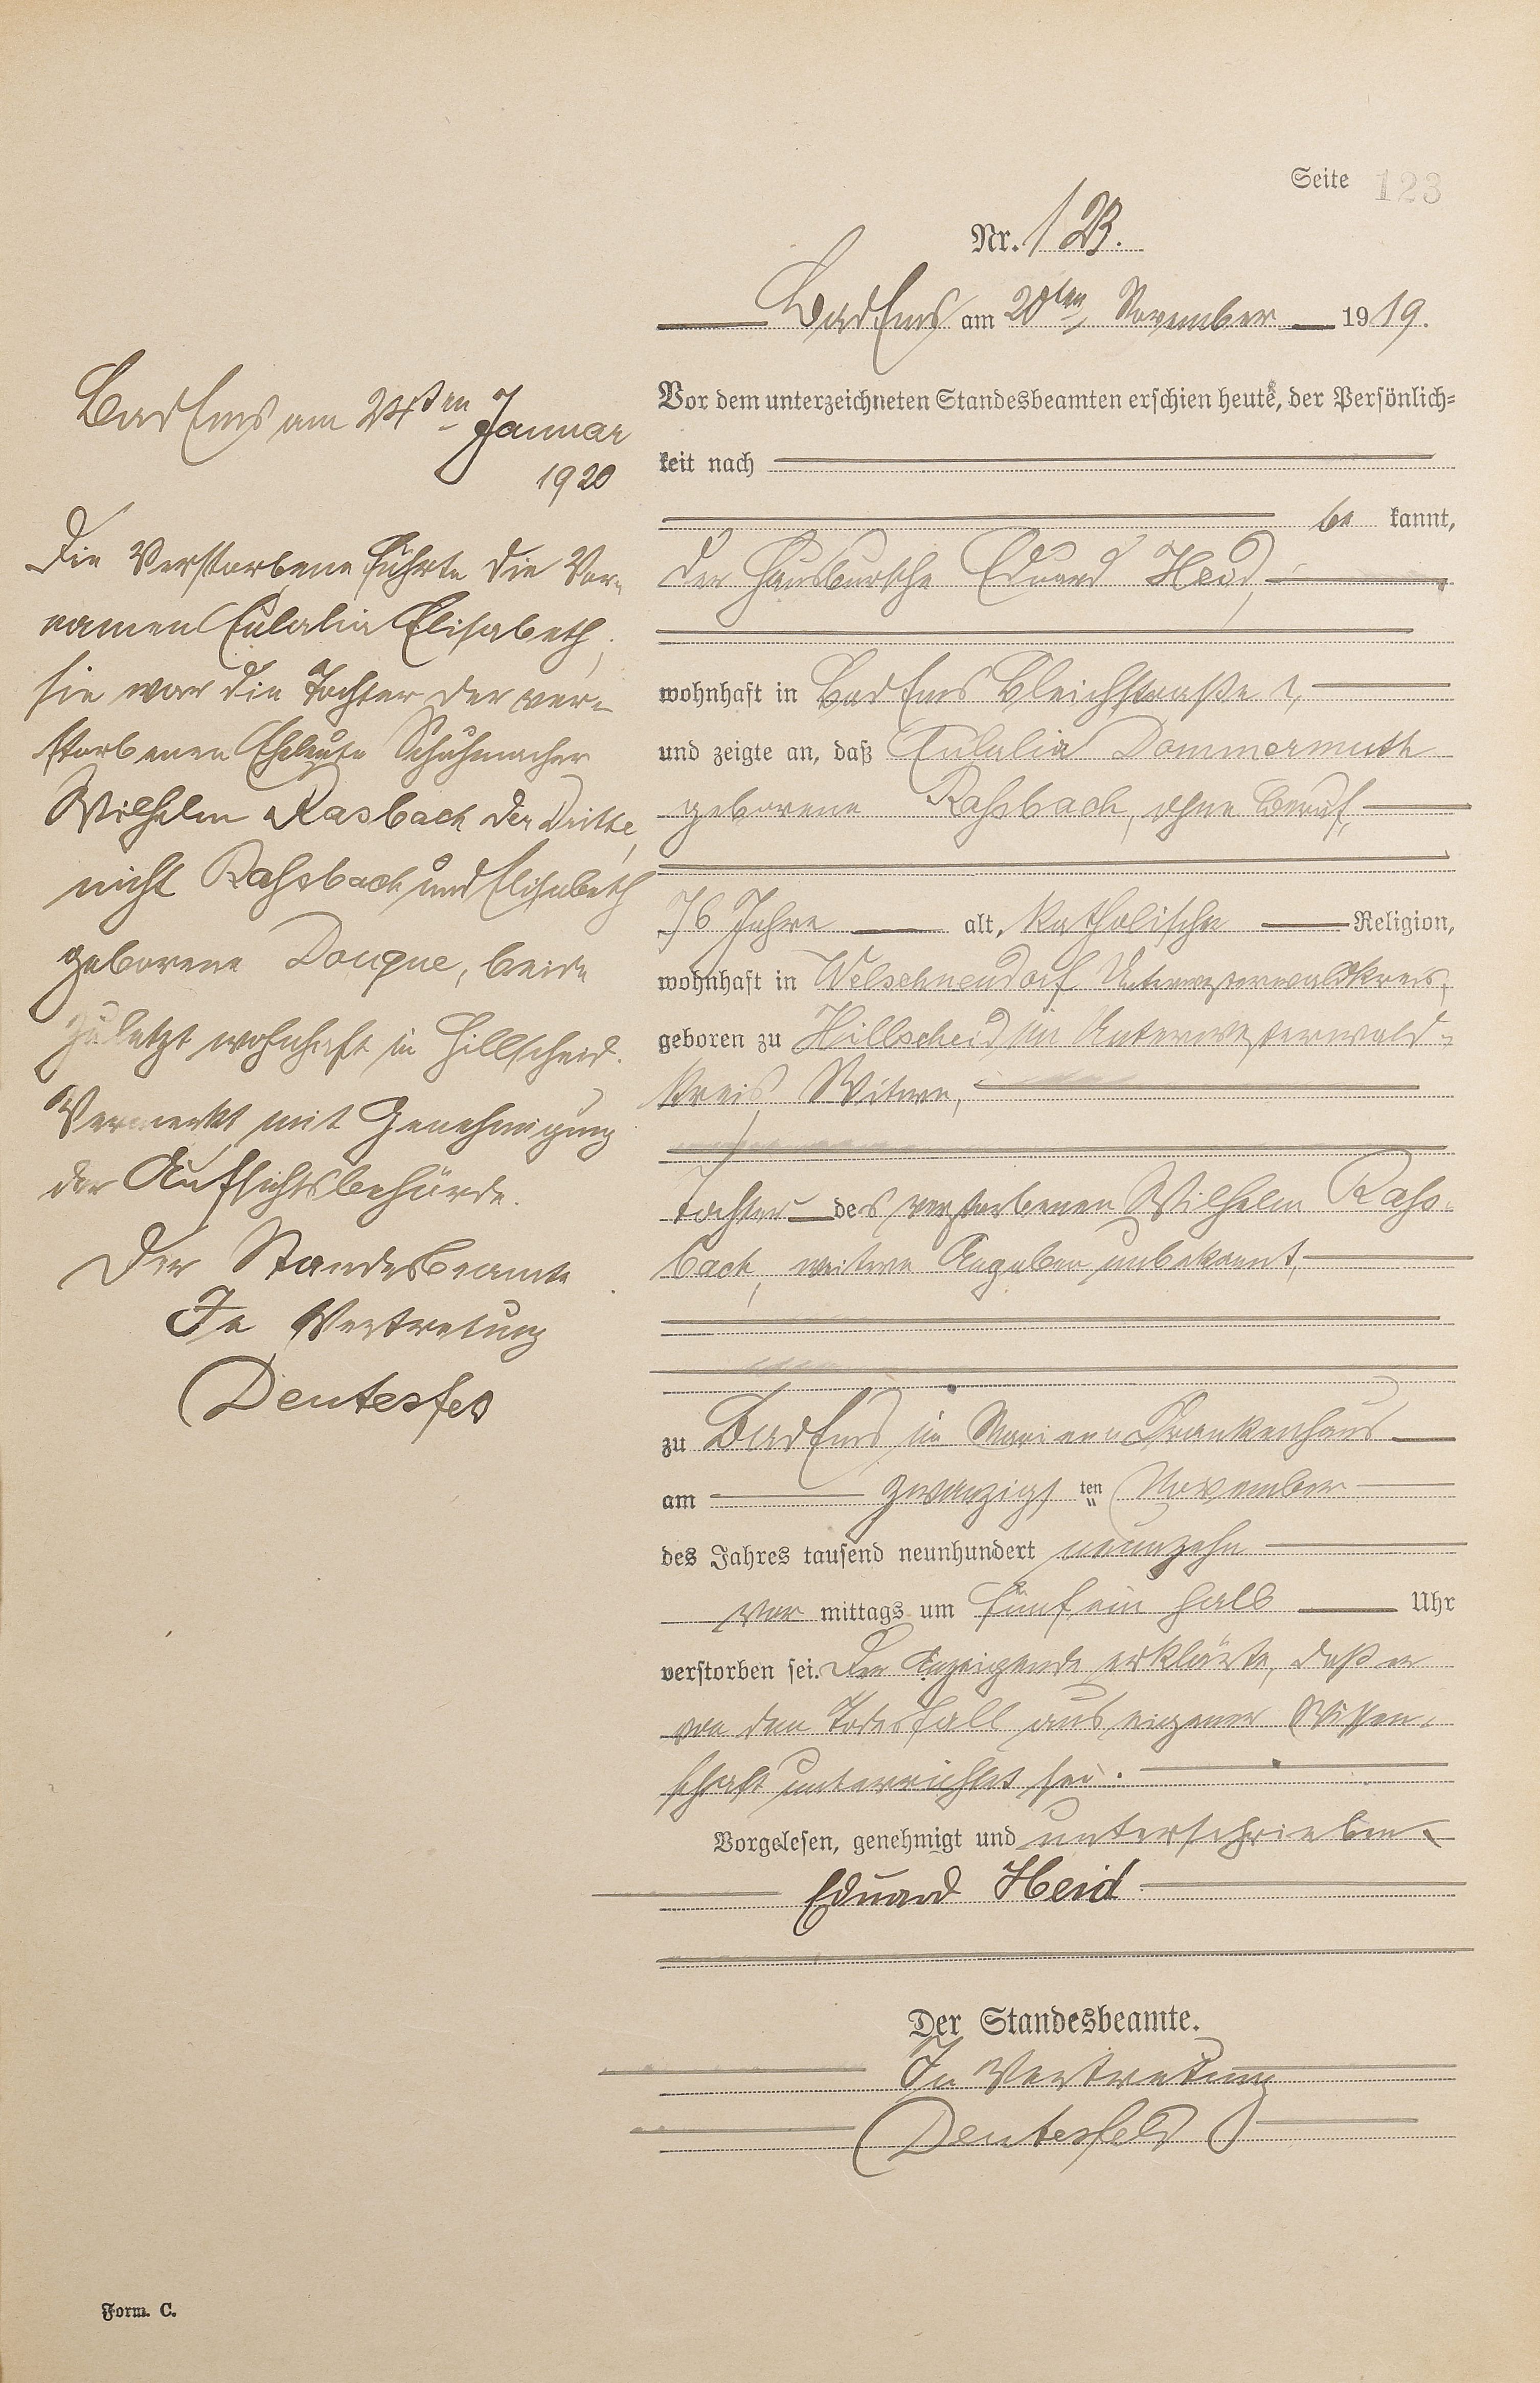 Seite 123
Nr. 123.
Bad Ems am 20ten November 1919.
Vor dem unterzeichneten Standesbeamten erschien heute, der Persönlich=
keit nach
be kannt,
der Hausbursche Eduard Heid,
wohnhaft in Bad Ems Bleichstraße
und zeigte an, daß Eulalia Dommermuth
geborene Rahsbach, ohne Beruf,
76 Jahre alt, katholischer Religion,
wohnhaft in Welschneudorf Unterwesterwaldkreis,
geboren zu Hillscheid im Unterwesterwald-
kreis, Witwe,
Tochter des verstorbenen Wilhelm Rahs-
bach, weitere Angaben unbekannt,
zu Bad Ems im Marien Krankenhaus
am zwanzigs ten November
des Jahres tausend neunhundert neunzehn
vor mittags um fünf ein halb Uhr
verstorben sei. Der Anzeigende erklärte, daß er
von dem Todesfall aus eigener Wissen-
schaft unterrichtet sei.
Vorgelesen, genehmigt und unterschrieben
Eduard Heid
Der Standesbeamte.
In Vertretung
Deutesfeld
Bad Ems am 24ten Januar
1920
Die Verstorbene führte die Vor-
namen Eulalia Elisabeth,
sie war die Tochter der ver-
storbenen Eheleute Schuhmacher
Wilhelm Rasbach der Dritte,
nicht Rahsbach und Elisabeth
geborene Douque, beide
zuletzt wohnhaft in Hillscheid.
Vermerkt mit Genehmigung
der Aufsichtsbehörde.
Der Standesbeamte
In Vertretung
Deutesfeld
Form. C.